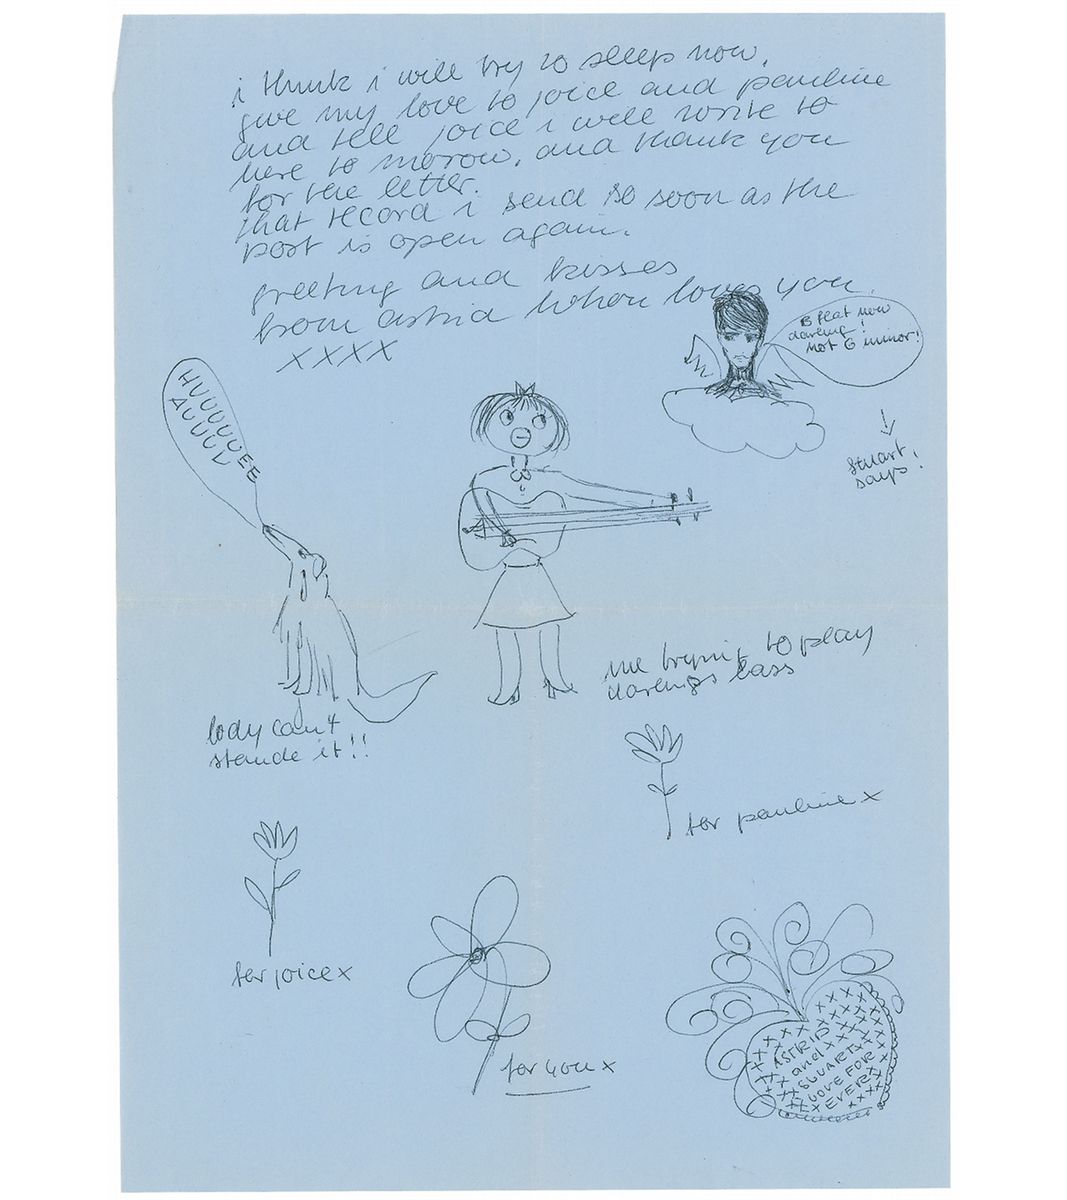 i think i will try to sleep now,
give my love to joice and pauline
and tell joice i will write to
here to morow, and thank you
for the letter.
that record i send so soon as the
post is open again.
greeting and kisses
from astrid whon loves you.
xxxx
B fleat now
darling!
not G minor!
stuart,
says!
HUUUUUEE
AUUUU
me trying to play
darlings bass
body can't
stande it!!
for pauline x
for joice x
for you x
ASTRID
and
STUART
LOVE FOR
EVER!